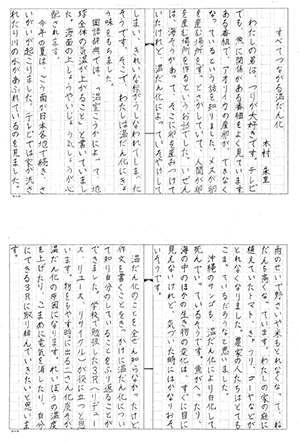 すべてつながる温だん化
木村 朱里
わたしの弟は、つりが大好きです。テレビ
でも魚に関係がある番組をよく見ています。
ある番組で、アメリカの産卵が、できなく
なっているという話を知りました。メスが卵
を産む場所を、どうにかしていて、人間が卵
を産む場所を作るというお話でした。いぜん
は、海そうがあって、そこに卵を産みつけて
いたけれど、温だん化によって、
しまい、きれいな
そうです。そこで、わたしは温だん化にき
ょう味をもちました。
国語辞典では、「温室こうかによって、地
球全体の気温が上がること」と書いていまし
た。海面の上しょうやいじょう気しょうが心
配されます。
今年の夏は、ごう雨が日本各地で続き、さ
いがいが起こりました。テレビでは家が流さ
れたり川の水があふれているのを見ました。
雨のせいで野さいや米もとれなくなって、ね
だんも高くなっています。わたしの家の庭に
植えていたトマト、きゅうり、ゴーヤなどが
とれなくなりました。農家の人たちはとても
こまっているだろうなと思いました。
沖縄のサンゴも、温だん化により白化して
死んでいっているそうです。魚がへったり、
海の中のほかの生き物の変化は、すぐに目に
見えないけれど、気づいた時にはかなりおそ
いそうです。
温だん化のことを全ぜん知らなかったけど
作文を書くことをきっかけに温だん化につい
て知り自分のしていることをふり返ることが
できました。学校で勉強した3R(リデュー
ス、リユース、リサイクル)が役に立つと思
います。物をもやす時に出る二さん化炭そが
温だん化の原因になります。れいぼうの温度
を上げたり、こまめに電気を消したり、自分
にできる3Rに取り組んでいきたいと思いま
す。